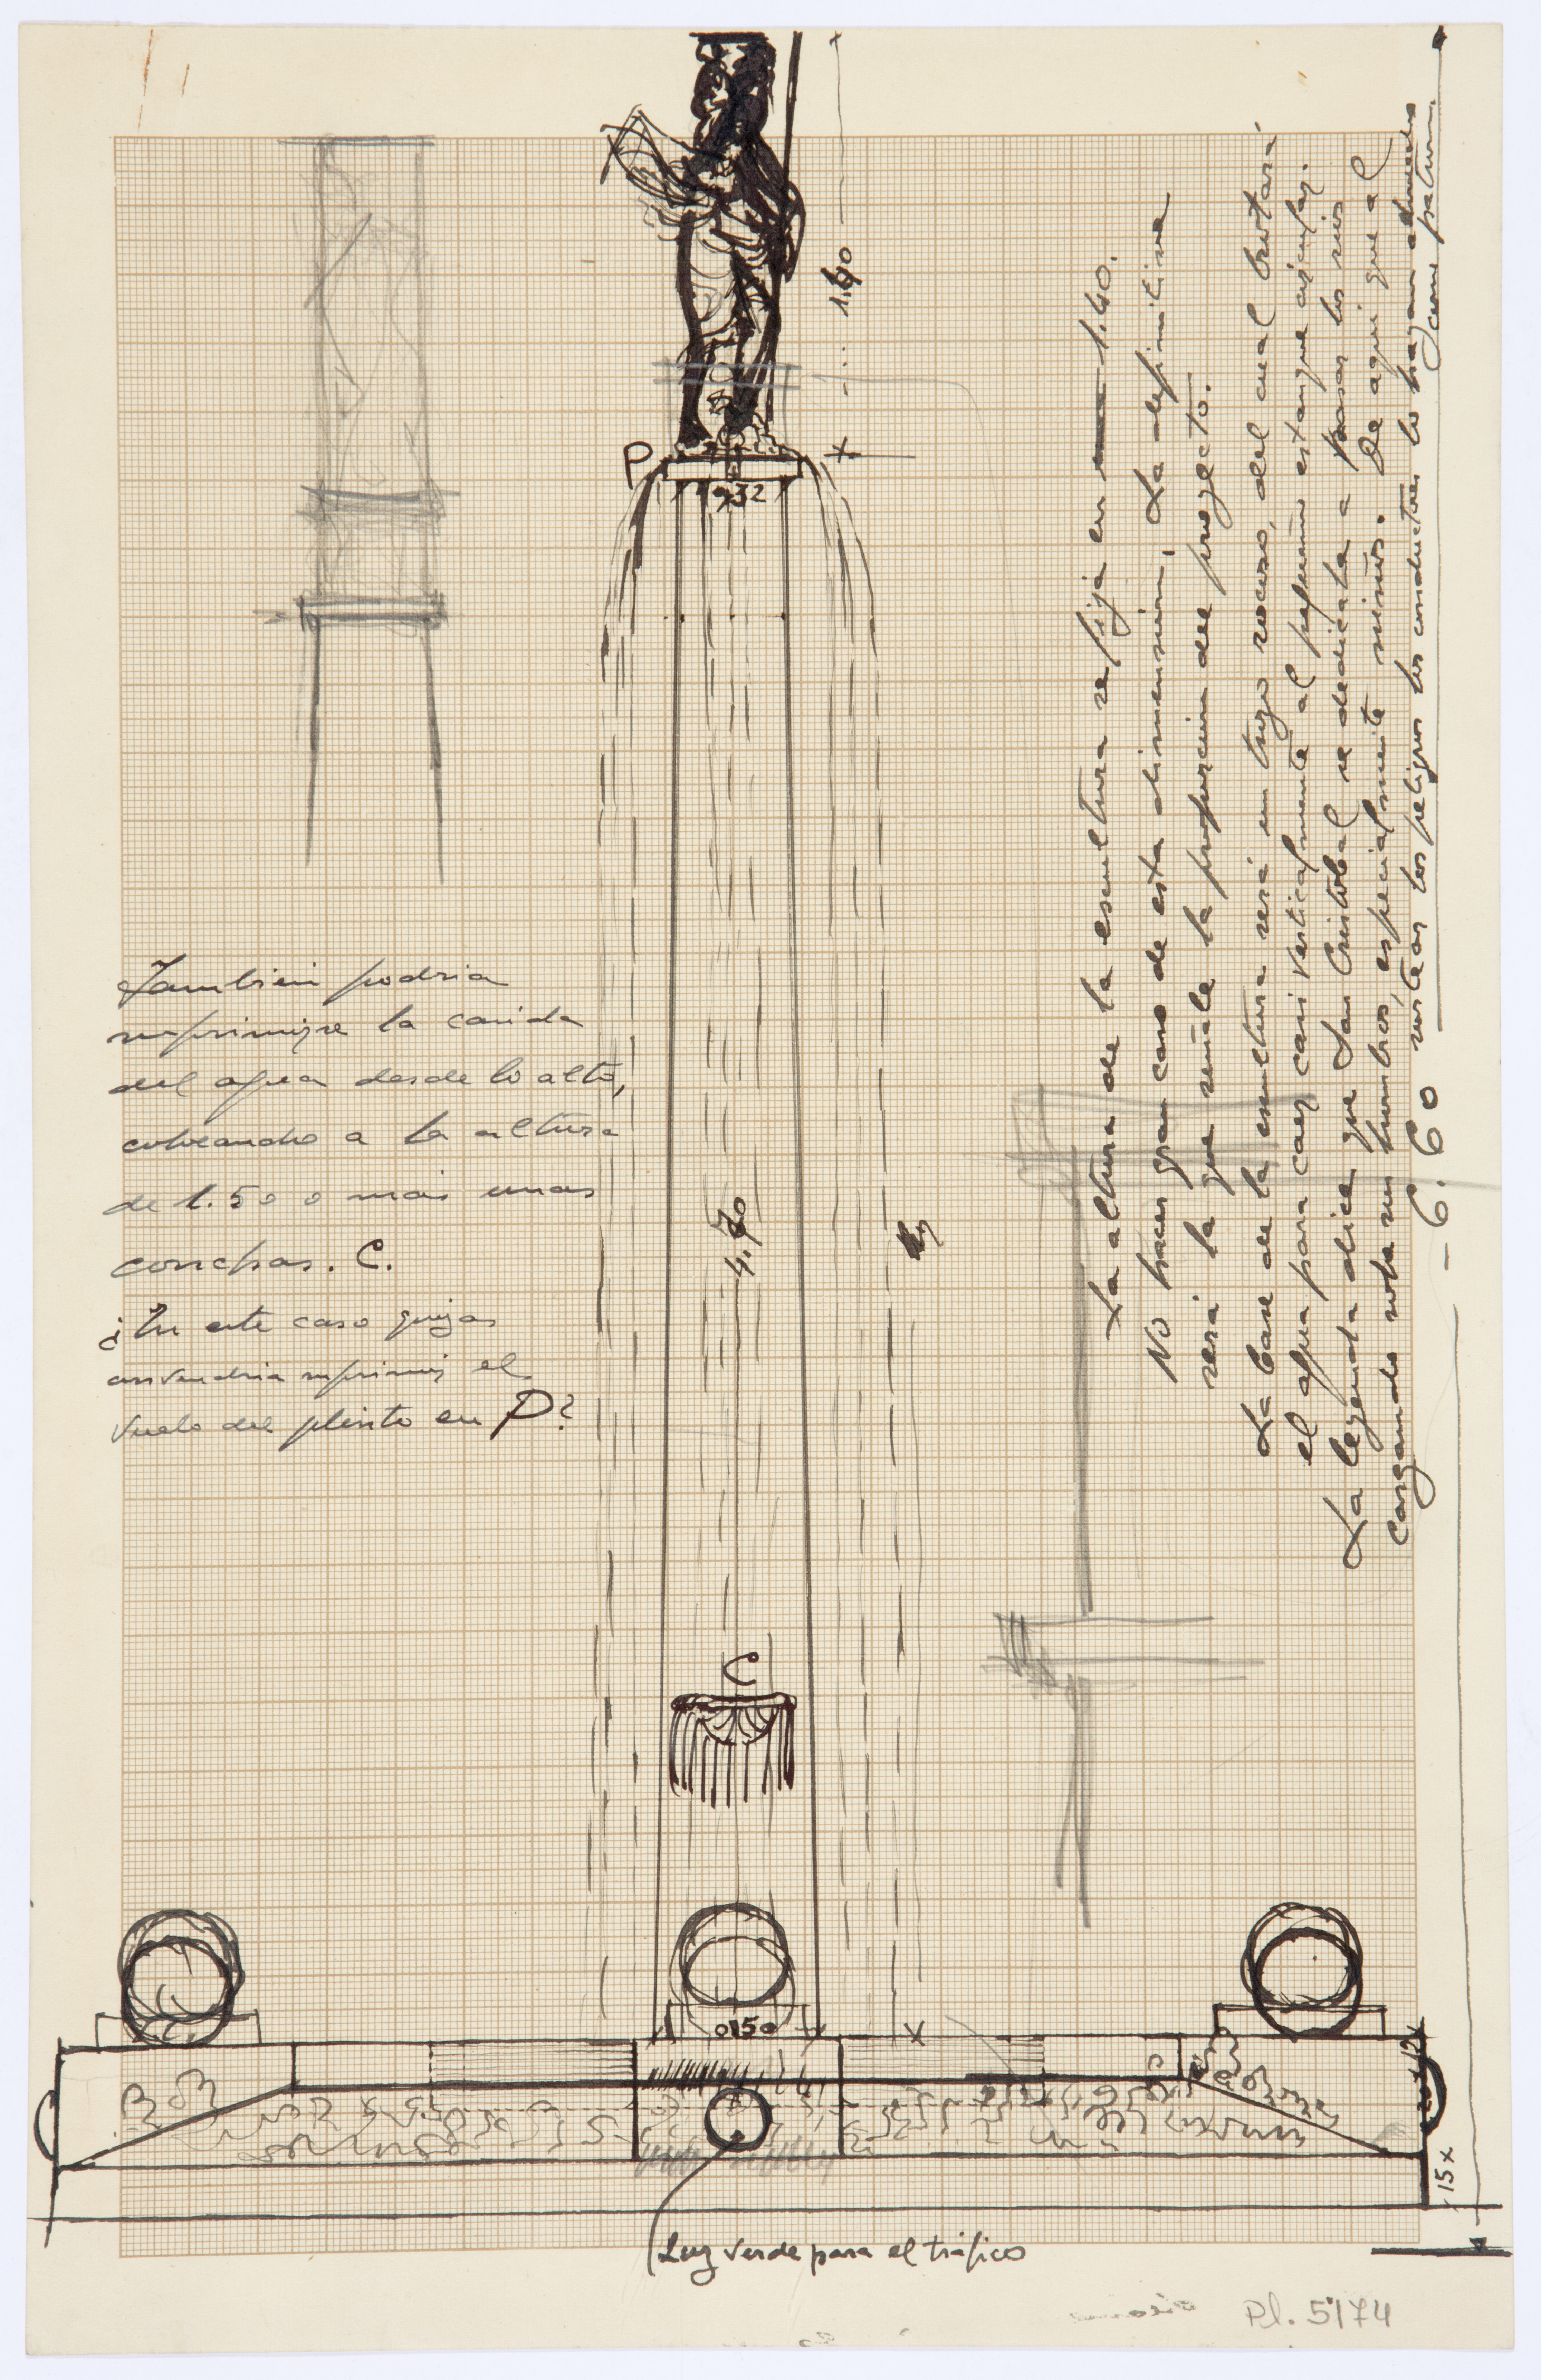 1.40
P
932
La altura de la escultura se fija en 1.40.
No hacer gran caso de esta dimensión, La definitiva
será la que señale la proporción del proyecto.
La base de la escultura será un trozo rocoso, del cual brotará
el agua para caer casi verticalmente al pequeño estanque circular.
La leyenda dice que San Cristobal se dedicaba a pasar los rios
cargando sobre sus hombros, especialmente niños. De aqui que al
sortear los peligros los conductores lo hayan
como patron.
6.60
Tambien podria
suprimirse la caida
del agua desde lo alto,
colocando a la altura
de 1.50 o mas unas
conchas. C.
¿En este caso quizas
convendria suprimir el
vuelo del plinto en P?
4.70
C
0.50
x
20 x 12
15 x
Luz verde para el tráfico
Pl. 5174